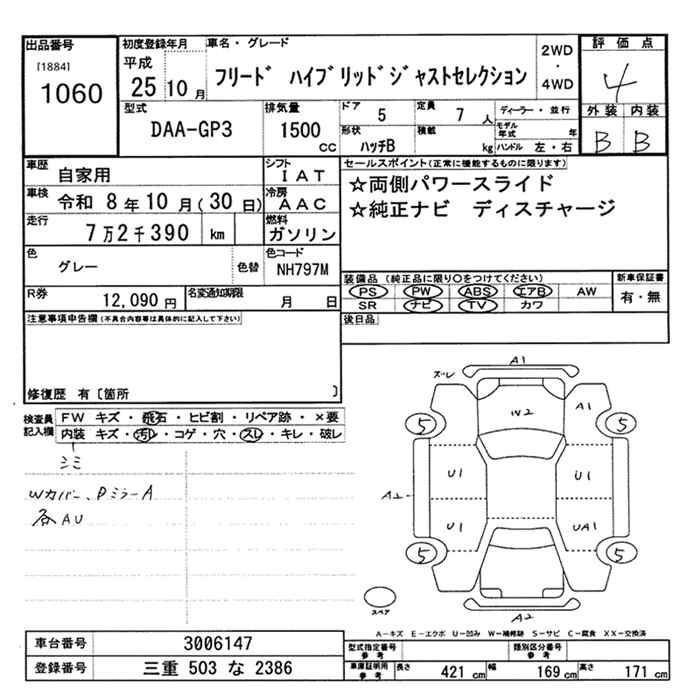 出品番号
[1884]
1060
初度登録年月
平成
25 10月
車名・グレード
フリード ハイブリッドジャストセレクション
2WD
・
4WD
評価点
4
外装 内装
B B
型式
DAA-GP3
排気量
1500
cc
ドア
5
定員
7 人
ディーラー・並行
形状
ハッチB
積載
kg
モデル年式
年
ハンドル 左・右
車歴
自家用
シフト
IAT
車検
令和 8年10月(30日)
冷房
AAC
走行
7万2千390 km
燃料
ガソリン
色
グレー
色替
色コード
NH797M
R券
12,090円
名変通知期限
月 日
セールスポイント(正常に機能するものに限ります)
☆両側パワースライド
☆純正ナビ ディスチャージ
装備品(純正品に限り○をつけてください)
PS PW ABS エアB AW
SR ナビ TV カワ
新車保証書
有・無
後日品
注意事項申告欄(不具合内容等は具体的に記入して下さい)
修復歴 有〔箇所 〕
検査員記入欄
FW キズ・飛石・ヒビ割・リペア跡・×要
内装 キズ・汚レ・コゲ・穴・スレ・キレ・破レ
シミ
Wカバー、Pミラー A
各AU
A1
ズレ
W2
A1
5
5
U1
U1
A2
U1
UA1
5
5
スペア
A2
A-キズ E-エクボ U-凹み W-補修跡 S-サビ C-腐食 XX-交換済
車台番号
3006147
登録番号
三重 503 な 2386
型式指定番号
参考
類別区分番号
参考
車庫証明用
参考
長さ
421 cm
幅
169 cm
高さ
171 cm